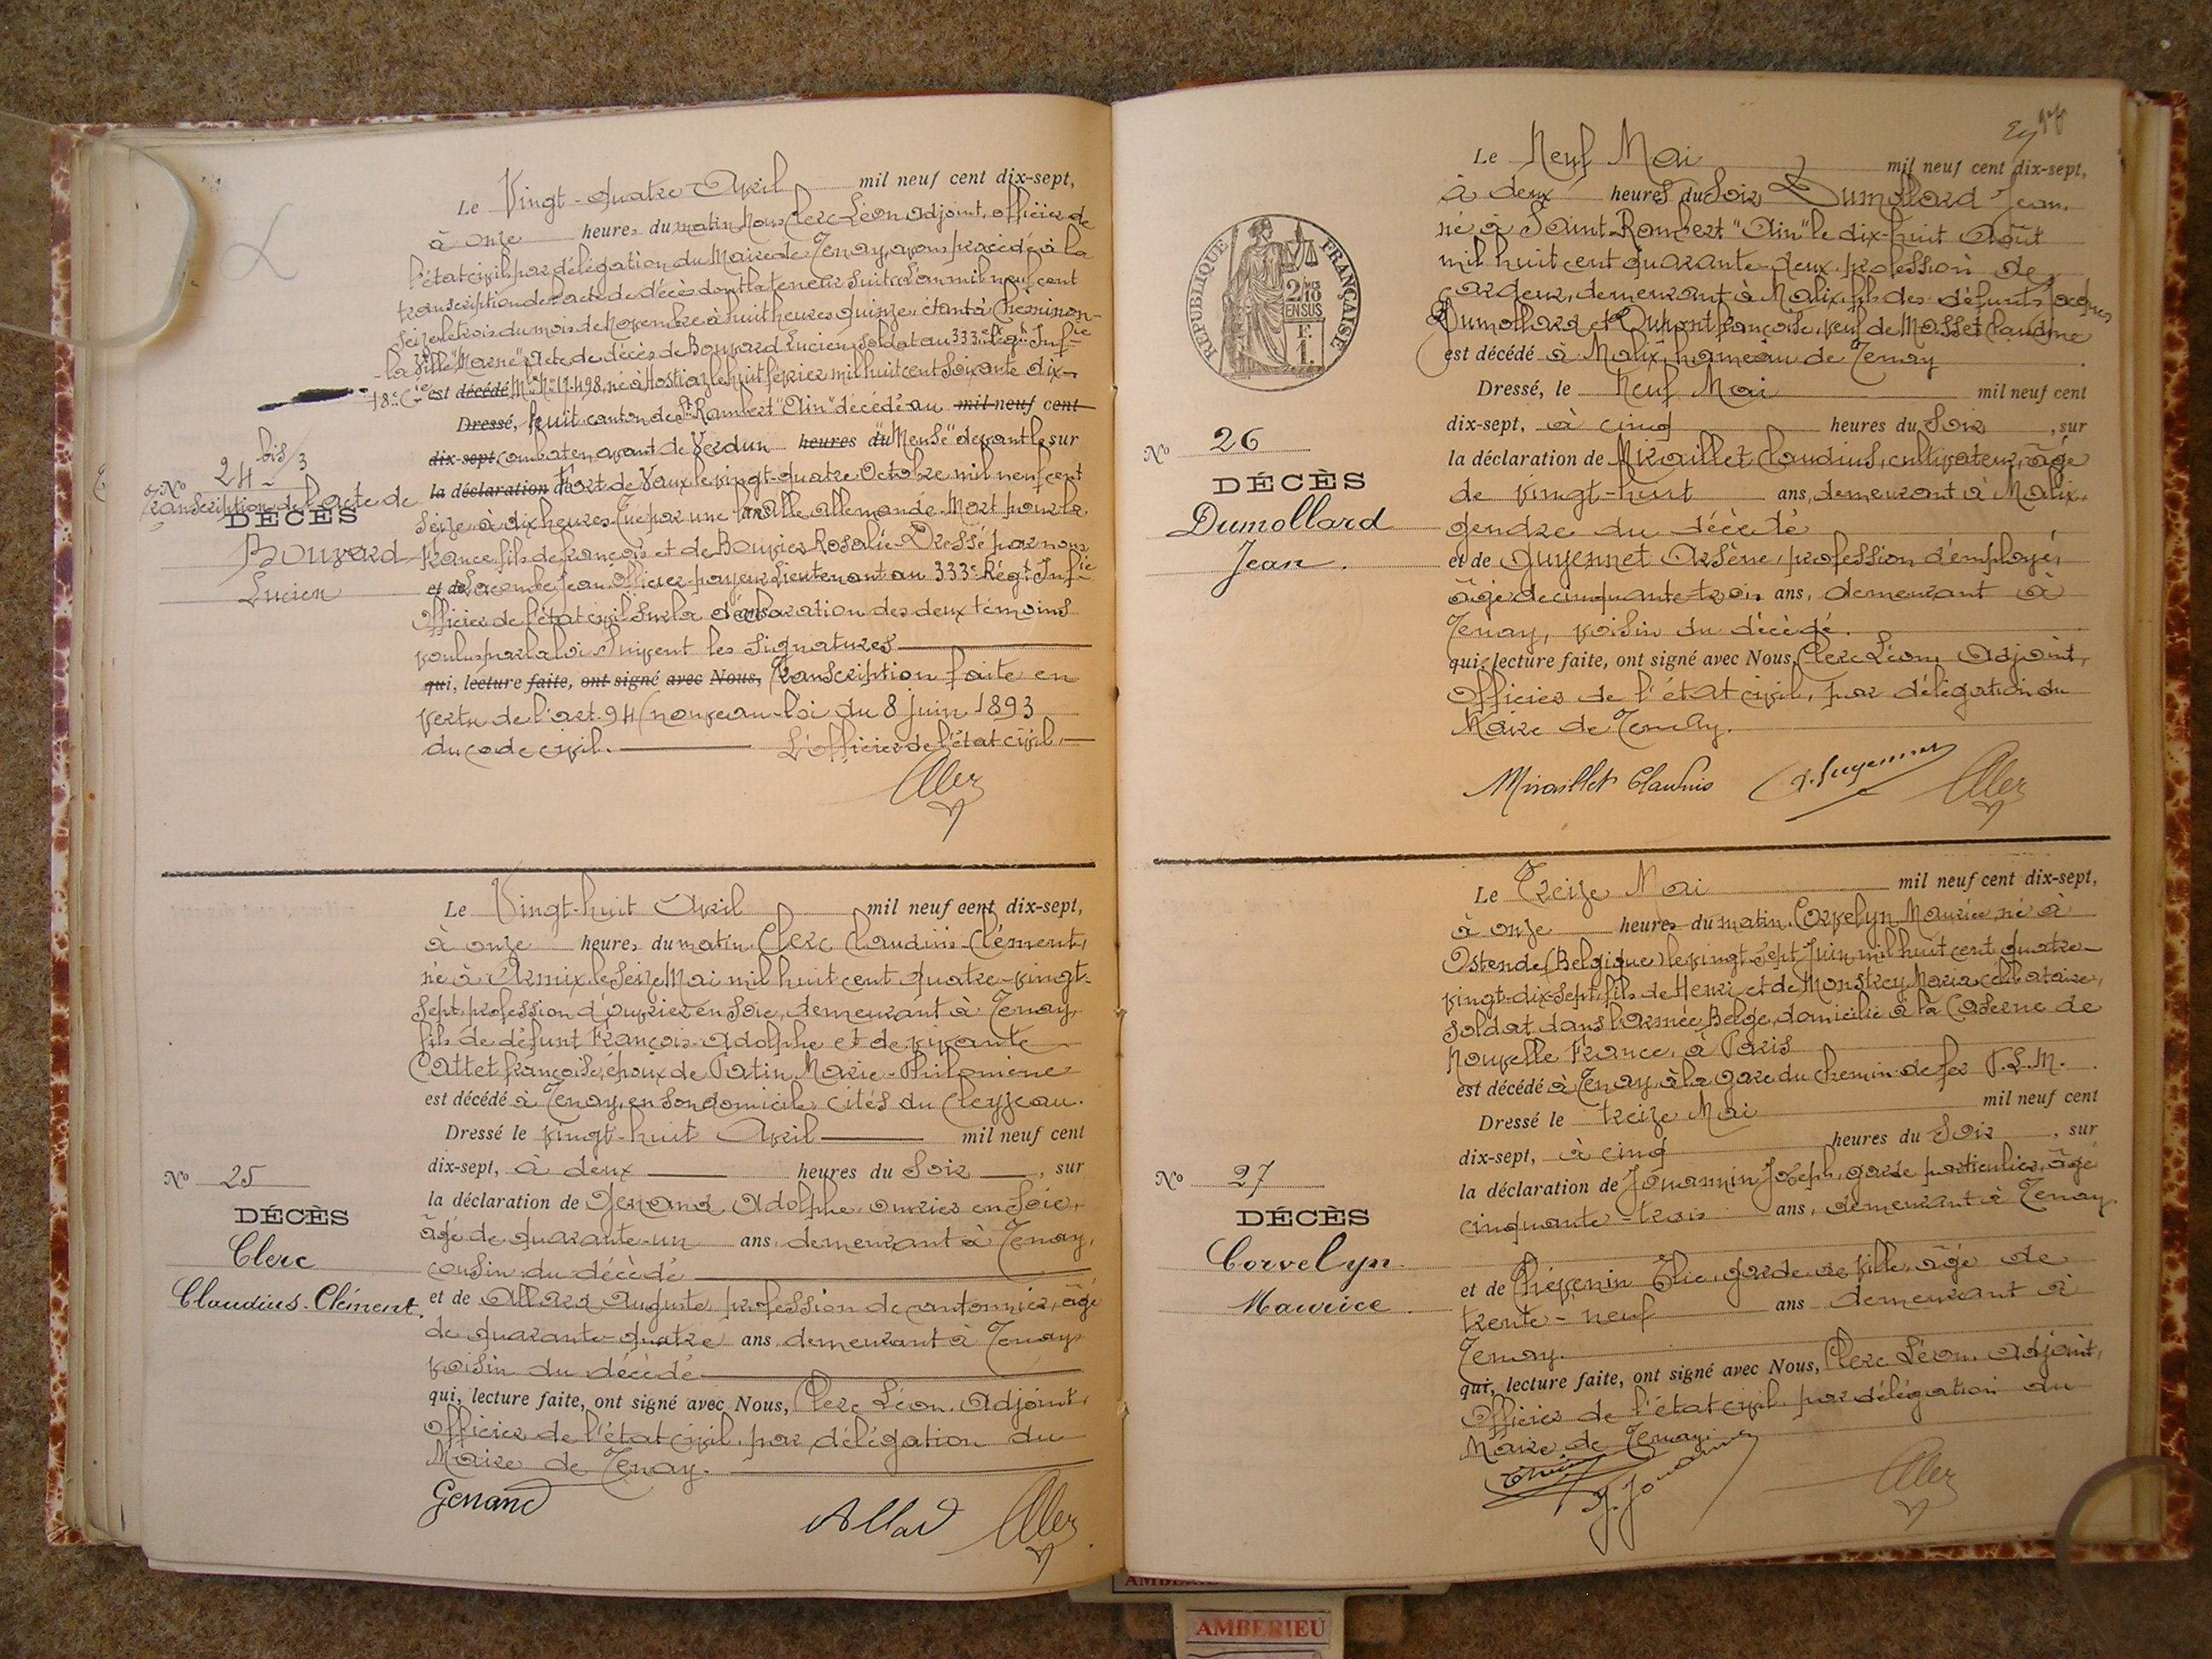 Le Vingt-quatre Avril mil neuf cent dix-sept,
à onze heures du matin Nous Clerc Léon adjoint, officier de
l'état civil par délégation du Maire de Tenay, avons procédé à la
transcription de l'acte de décès dont la teneur suit: L'an mil neuf cent
Seize le trois du mois de Novembre à huit heures quinze, étant à Cheminon-
-la Ville "Marne" Acte de décès de Bouvard Lucien soldat au 333e Régt Infie
18e Cie est décédé Mle 17.498, né à Hostiaz le huit février mil huit cent soixante dix-
Dressé, huit canton de St Rambert "Ain" décédé au mil neuf cent
dix-sept, combat en avant de Verdun heures du "Meuse" devant le sur
la déclaration de fort de Vaux le vingt-quatre Octobre mil neuf cent
Seize à dix heures. Tué par une balle allemande. Mort pour la
ans
France, fils de françois et de Bouvier Rosalie - Dressé par nous
et de Lacombe Jean Officier-payeur Lieutenant au 333e Régt Infie
Officier de l'état civil sur la déclaration des deux témoins
ans
voulus par la loi. Suivent les Signatures
qui, lecture faite, ont signé avec Nous, Transcription faite en
vertu de l'art. 94 (nouveau-loi du 8 juin 1893
du code civil. L'officier de l'état civil,
No 24 bis/3
Transcription de l'acte de
DÉCÈS
Bouvard
Lucien
Le Vingt-huit Avril mil neuf cent dix-sept,
à onze heures du matin, Clerc Claudius-Clément,
né à Armix le Seize Mai mil huit cent quatre-vingt-
sept, profession d'ouvrier en Soie, demeurant à Tenay,
fils de défunt François-Adolphe et de vivante
Cattet françoise, époux de Patin Marie-Philomène
est décédé à Tenay, en son domicile, cités du Cleyzeau.
Dressé le vingt-huit Avril mil neuf cent
dix-sept, à deux heures du Soir, sur
la déclaration de Genand, Adolphe, ouvrier en Soie,
âgé de quarante-un ans, demeurant à Tenay,
cousin du décédé
et de Allard Auguste, profession de cantonnier, âgé
de quarante-quatre ans, demeurant à Tenay,
voisin du décédé
qui, lecture faite, ont signé avec Nous, Clerc Léon, Adjoint,
Officier de l'état civil, par délégation du
Maire de Tenay.
Genand Allard
No 25
DÉCÈS
Clerc
Claudius-Clément.
RÉPUBLIQUE FRANÇAISE
2/10 EN SUS
F. 1.
Le Neuf Mai mil neuf cent dix-sept,
à deux heures du Soir, Dumollard Jean,
né à Saint-Rambert "Ain" le dix-huit Août
mil huit cent quarante-deux, profession de
cardeur, demeurant à Malix, fils des défunts Jacques
Dumollard et Dupont françoise, veuf de Masset Claudine
est décédé à Malix, hameau de Tenay
Dressé, le Neuf Mai mil neuf cent
dix-sept, à cinq heures du Soir, sur
la déclaration de Miraillet Claudius, cultivateur, âgé
de vingt-huit ans, demeurant à Malix,
gendre du décédé
et de Guyennet Arsène, profession d'employé,
âgé de cinquante-trois ans, demeurant à
Tenay, voisin du décédé.
qui, lecture faite, ont signé avec Nous, Clerc Léon, Adjoint,
Officier de l'état civil, par délégation du
Maire de Tenay.
Miraillet Claudius A. Guyennet
No 26
DÉCÈS
Dumollard
Jean.
Le Treize Mai mil neuf cent dix-sept,
à onze heures du matin, Corvelyn Maurice, né à
Ostende (Belgique) le vingt-sept Juin mil huit cent quatre-
vingt-dix-sept, fils de Henri et de Monstrey Maria, célibataire,
soldat dans l'armée Belge, domicilié à la Caserne de
Nouvelle France, à Paris
est décédé à Tenay, à la gare du chemin de fer P.L.M.
Dressé le treize Mai mil neuf cent
dix-sept, à cinq heures du Soir, sur
la déclaration de Jouannin Joseph, garde particulier, âgé
cinquante-trois ans, demeurant à Tenay.
et de Thévenin Elie, garde de ville, âgé de
trente-neuf ans demeurant à
Tenay.
qui, lecture faite, ont signé avec Nous, Clerc Léon, Adjoint,
Officier de l'état civil, par délégation du
Maire de Tenay.
No 27
DÉCÈS
Corvelyn
Maurice.
AMBERIEU